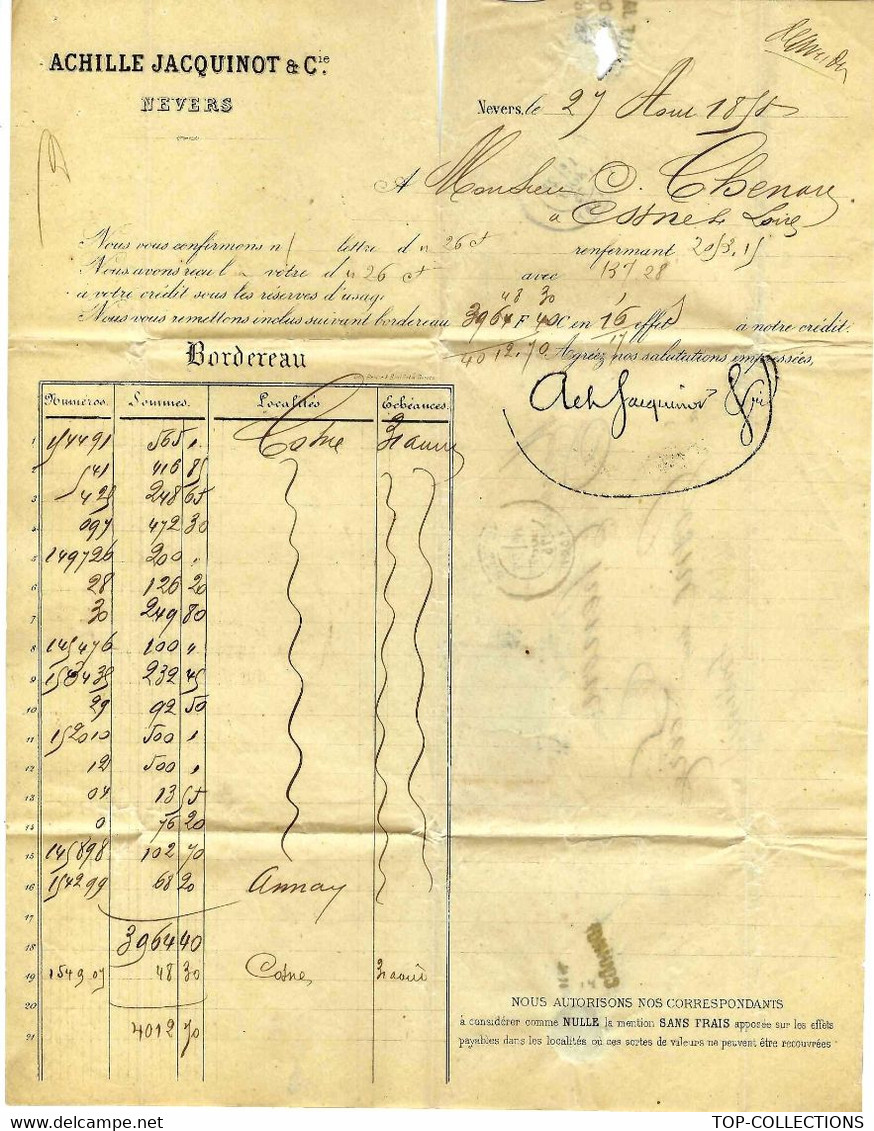 ACHILLE JACQUINOT & Cie.
NEVERS
Nevers, le 27 Aout
A Monsieur
a Cosne s Loire
Nous vous confirmons n/ lettre d u 26 ct renfermant
Nous avons reçu l a votre d u 26 ct avec 137 28
à votre crédit sous les réserves d'usage
48 30
Nous vous remettons inclus suivant bordereau 3964 F 40 C en 16 effets à notre crédit.
4012,70 17
Agréez nos salutations empressées,
Ach Jacquinot & Cie
Bordereau
Numéros. Sommes. Localités Echéances.
1 154491 565 " Cosne 31 aout
2 541 416 85
3 425 248 65
4 097 472 30
5 149726 200 "
6 28 126 20
7 30 249 80
8 145476 100 "
9 232 45
10 29 92 50
11 152010 500 "
12 12 500 "
13 04 13 55
14 0 76 20
15 145898 102 70
16 154299 68 20 Annay
17
18 3964 40
19 154307 48 30 Cosne 31 aout
20
21 4012 70
NOUS AUTORISONS NOS CORRESPONDANTS
à considérer comme NULLE la mention SANS FRAIS apposée sur les effets
payables dans les localités où ces sortes de valeurs ne peuvent être recouvrées
www.delcampe.net
TOP-COLLECTIONS